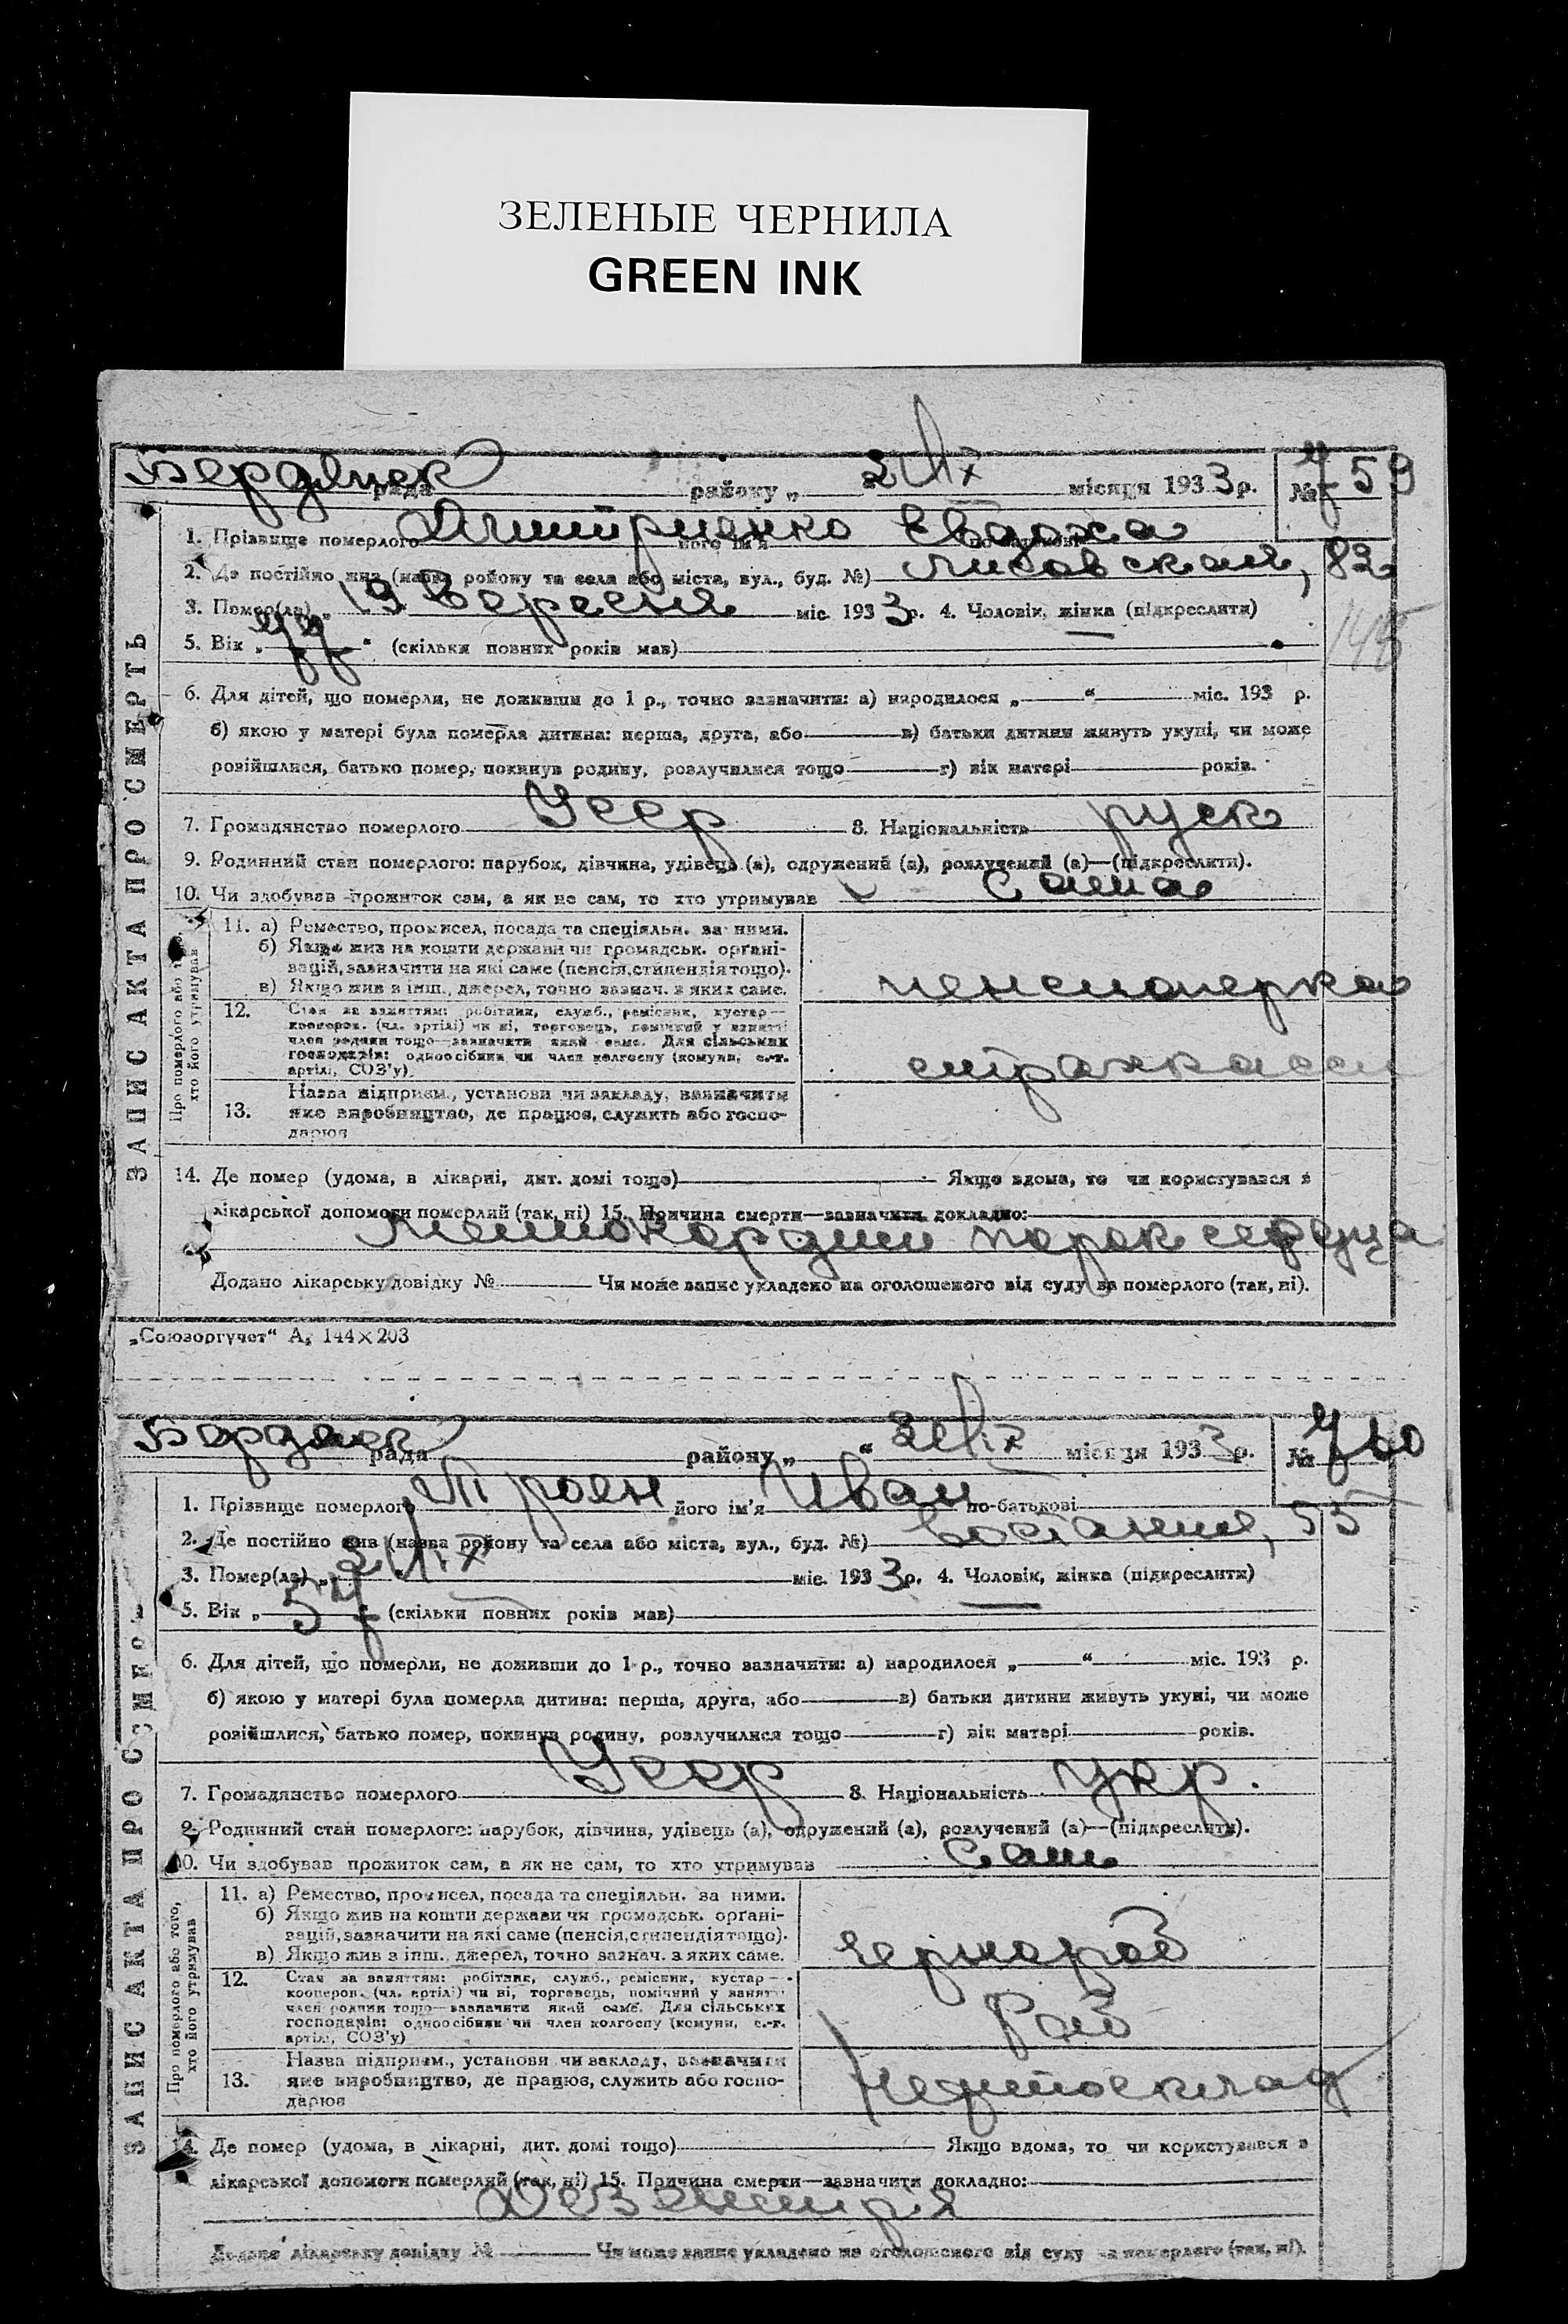 ЗЕЛЕНЫЕ ЧЕРНИЛА
GREEN INK
рада району „ 2/IX місяця 1933 р. № 759
1. Прізвище померлого Дмитриенко його ім'я Євдоха по-батькові
2. Де постійно жив (назва району та села або міста, вул., буд. №) Лисовская, 82
3. Помер(ла) „ 19 Вересня міс. 1933 р. 4. Чоловік, жінка (підкреслити)
145
5. Вік „ 77 “ (скільки повних років мав)
6. Для дітей, що померли, не доживши до 1 р., точно зазначити: а) народилося „ “ міс. 193 р.
б) якою у матері була померла дитина: перша, друга, або в) батьки дитини живуть укупі, чи може
розійшлися, батько помер, покинув родину, розлучилися тощо г) вік матері років.
7. Громадянство померлого Усср 8. Національність руск
9. Родинний стан померлого: парубок, дівчина, удівець (а), одружений (а), розлучений (а)—(підкреслити).
10. Чи здобував прожиток сам, а як не сам, то хто утримував Сама
ЗАПИС АКТА ПРО СМЕРТЬ
Про померлого або того, хто його утримував
11. а) Ремество, промисел, посада та спеціяльн. за ними.
б) Якщо жив на кошти держави чи громадськ. органі-
зацій, зазначити на які саме (пенсія, стипендія тощо).
в) Якщо жив з інш., джерел, точно зазнач. з яких саме.
пенсионерка
12. Стан за заняттям: робітник, служб., ремісник, кустар—
кооперов. (чл. артілі) чи ні, торговець, помічний у занятті
член родини тощо—зазначити який саме. Для сільських
господарів: одноосібник чи член колгоспу (комуни, с.-г.
артілі, СОЗ'у).
страхкасси
13. Назва підприєм., установи чи закладу, зазначити
яке виробництво, де працює, служить або госпо-
дарює
14. Де помер (удома, в лікарні, дит. домі тощо) Якщо вдома, то чи користувався з
лікарської допомоги померлий (так, ні) 15. Причина смерти—зазначити докладно:
порок сердца
Додано лікарську довідку № Чи може запис укладено на оголошеного від суду за померлого (так, ні).
„Союзоргучет“ А₅ 144×203
рада району „ “ 21/IX місяця 1933 р. № 760
1. Прізвище померлого Троен його ім'я Иван по-батькові
2. Де постійно жив (назва району та села або міста, вул., буд. №) 53
3. Помер(ла) „ 2/IX міс. 1933 р. 4. Чоловік, жінка (підкреслити)
5. Вік „ 57 “ (скільки повних років мав)
6. Для дітей, що померли, не доживши до 1 р., точно зазначити: а) народилося „ “ міс. 193 р.
б) якою у матері була померла дитина: перша, друга, або в) батьки дитини живуть укупі, чи може
розійшлися, батько помер, покинув родину, розлучилися тощо г) вік матері років.
7. Громадянство померлого Усср 8. Національність укр.
9. Родинний стан померлого: парубок, дівчина, удівець (а), одружений (а), розлучений (а)—(підкреслити).
10. Чи здобував прожиток сам, а як не сам, то хто утримував Сам
ЗАПИС АКТА ПРО СМЕ
Про померлого або того, хто його утримував
11. а) Ремество, промисел, посада та спеціяльн. за ними.
б) Якщо жив на кошти держави чи громадськ. органі-
зацій, зазначити на які саме (пенсія, стипендія тощо).
в) Якщо жив з інш., джерел, точно зазнач. з яких саме.
чернораб
12. Стан за заняттям: робітник, служб., ремісник, кустар—
кооперов. (чл. артілі) чи ні, торговець, помічний у занятті
член родини тощо—зазначити який саме. Для сільських
господарів: одноосібник чи член колгоспу (комуни, с.-г.
артілі, СОЗ'у)
Раб
13. Назва підприєм., установи чи закладу, зазначити
яке виробництво, де працює, служить або госпо-
дарює
Нефтосклад
14. Де помер (удома, в лікарні, дит. домі тощо) Якщо вдома, то чи користувався з
лікарської допомоги померлий (так, ні) 15. Причина смерти—зазначити докладно:
Дезентрія
Додано лікарську довідку № Чи може запис укладено на оголошеного від суду за померлого (так, ні).